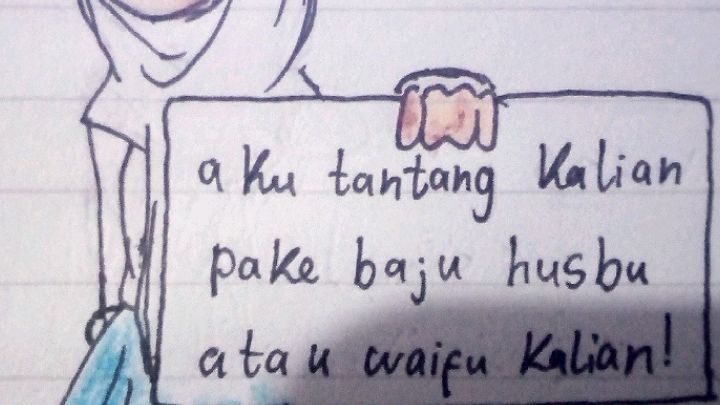 aku tantang kalian
pake baju husbu
atau waifu kalian!